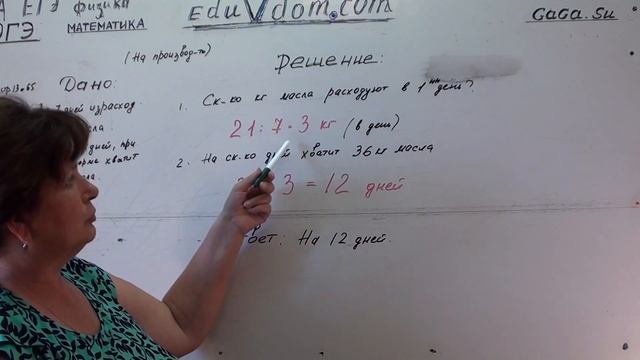 ЕГЭ физика
ОГЭ МАТЕМАТИКА
EduVdom.com
GaGa.Su
(На производ-ть)
Решение:
Дано:
дней израсход.
дней, при
хватит
1. Ск-ко кг масла расходуют в 1 день?
21 : 7 = 3 кг (в день)
2. На ск-ко дней хватит 36 кг масла
3 = 12 дней
На 12 дней.